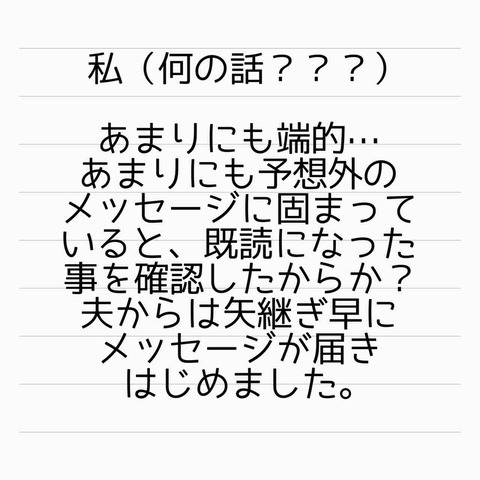 私（何の話？？？）
あまりにも端的…
あまりにも予想外の
メッセージに固まって
いると、既読になった
事を確認したからか？
夫からは矢継ぎ早に
メッセージが届き
はじめました。